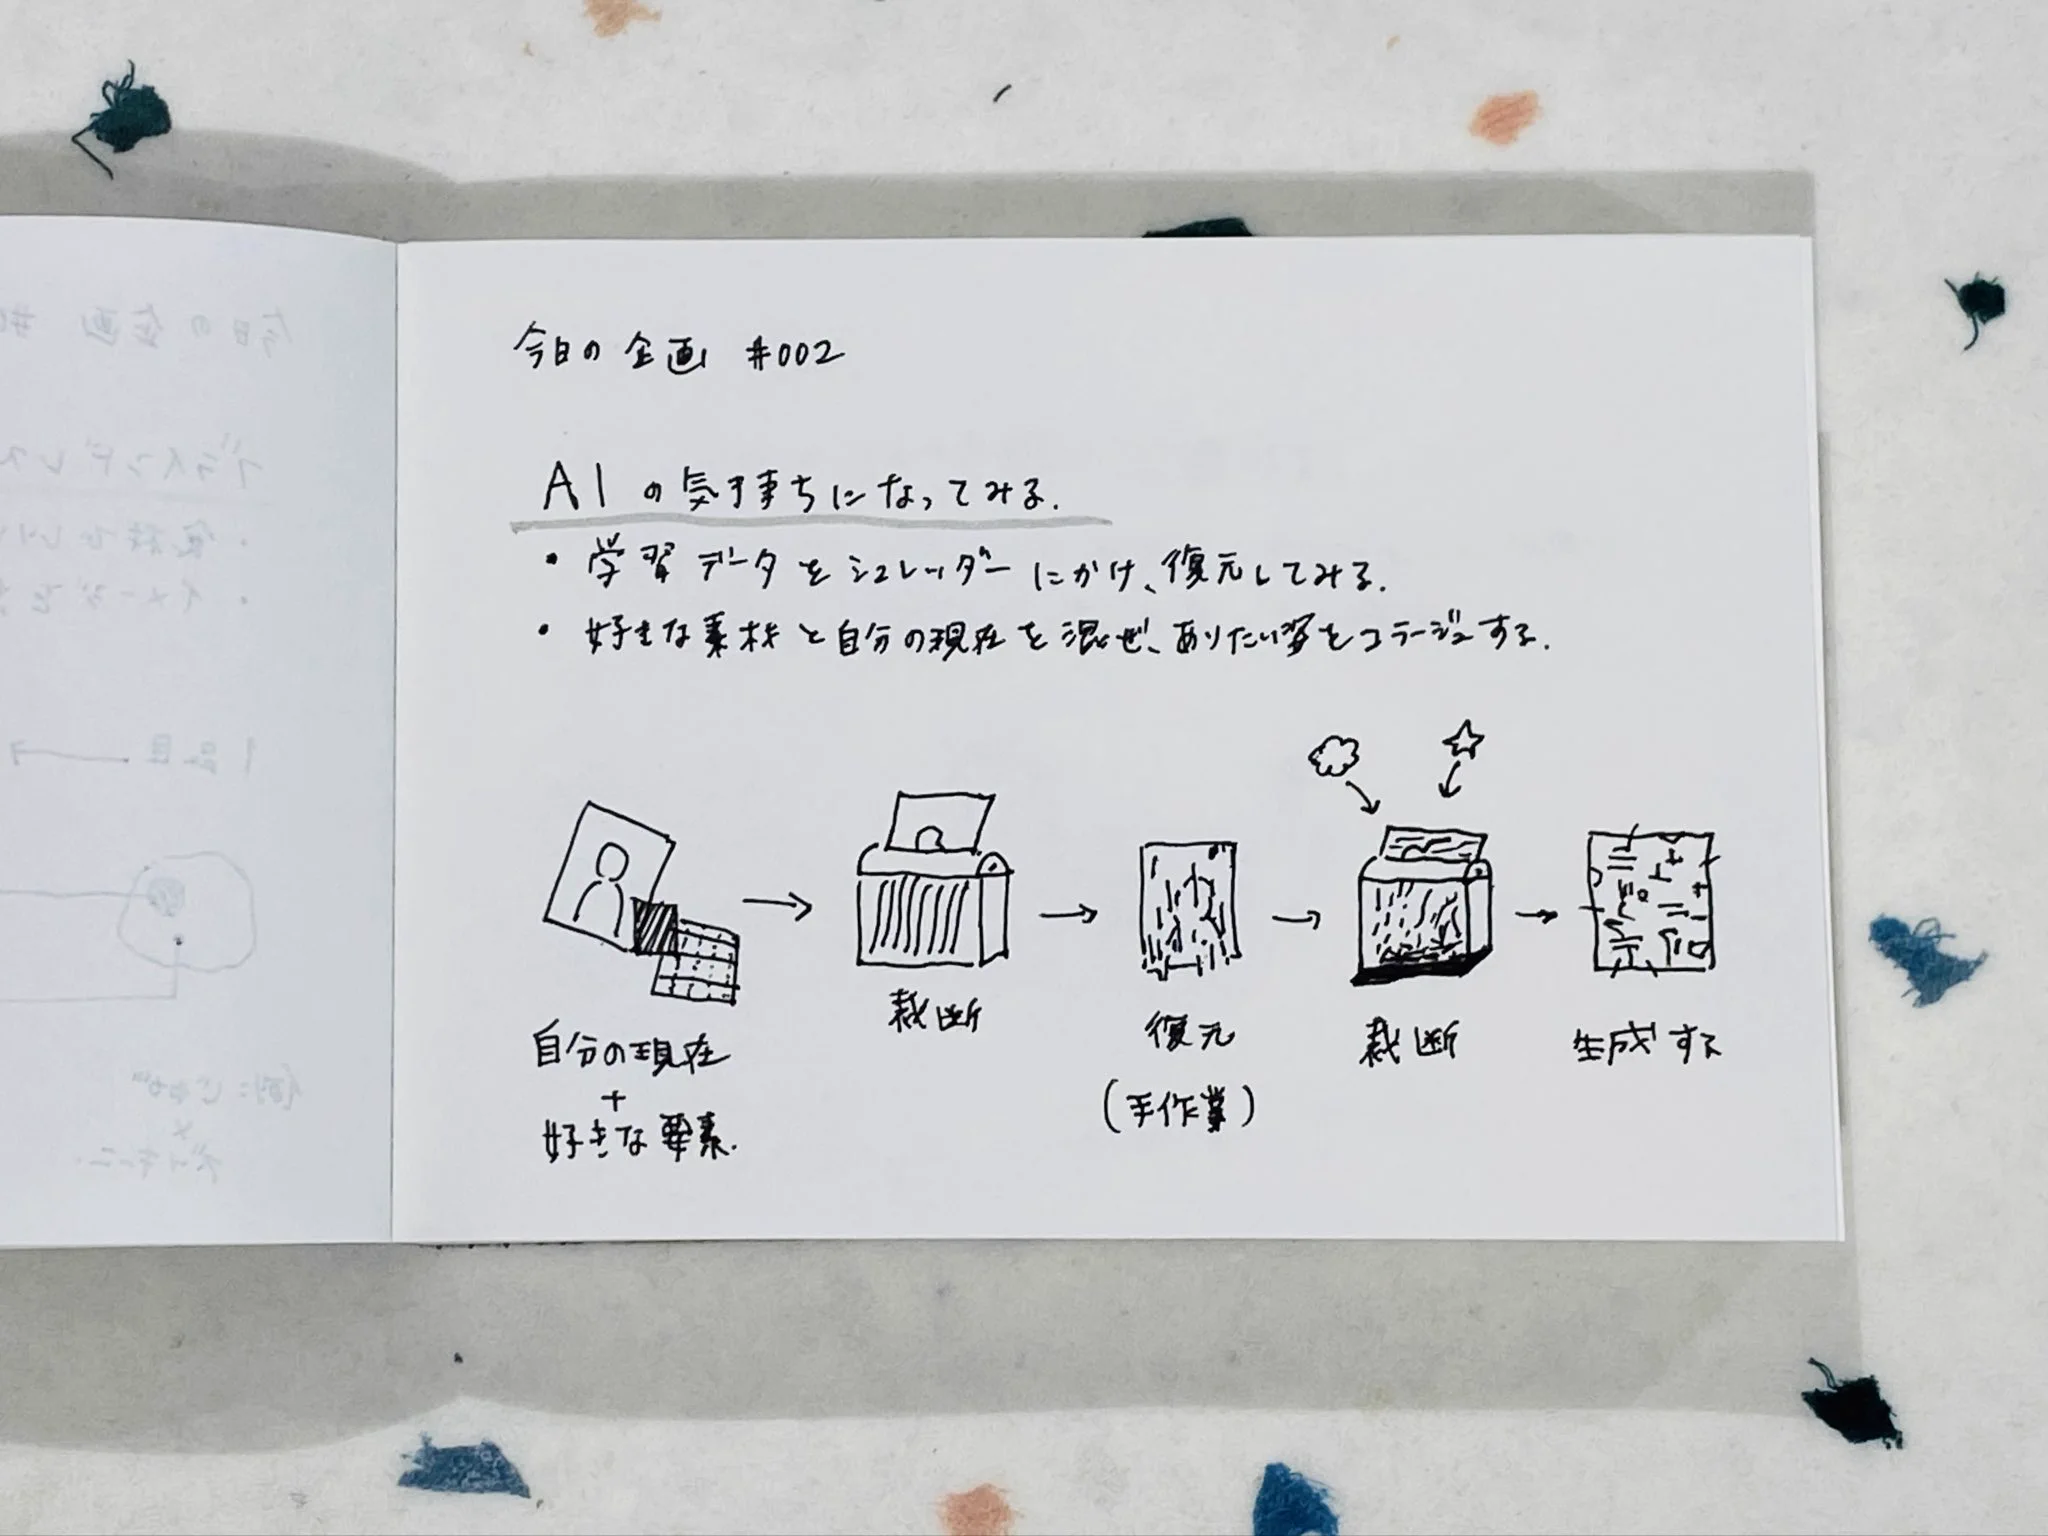 今日の企画 #002
AIの気持ちになってみる.
・学習データをシュレッダーにかけ、復元してみる.
・好きな素材と自分の現在を混ぜ、ありたい姿をコラージュする.
自分の現在
+
好きな要素.
裁断
復元
(手作業)
裁断
生成する